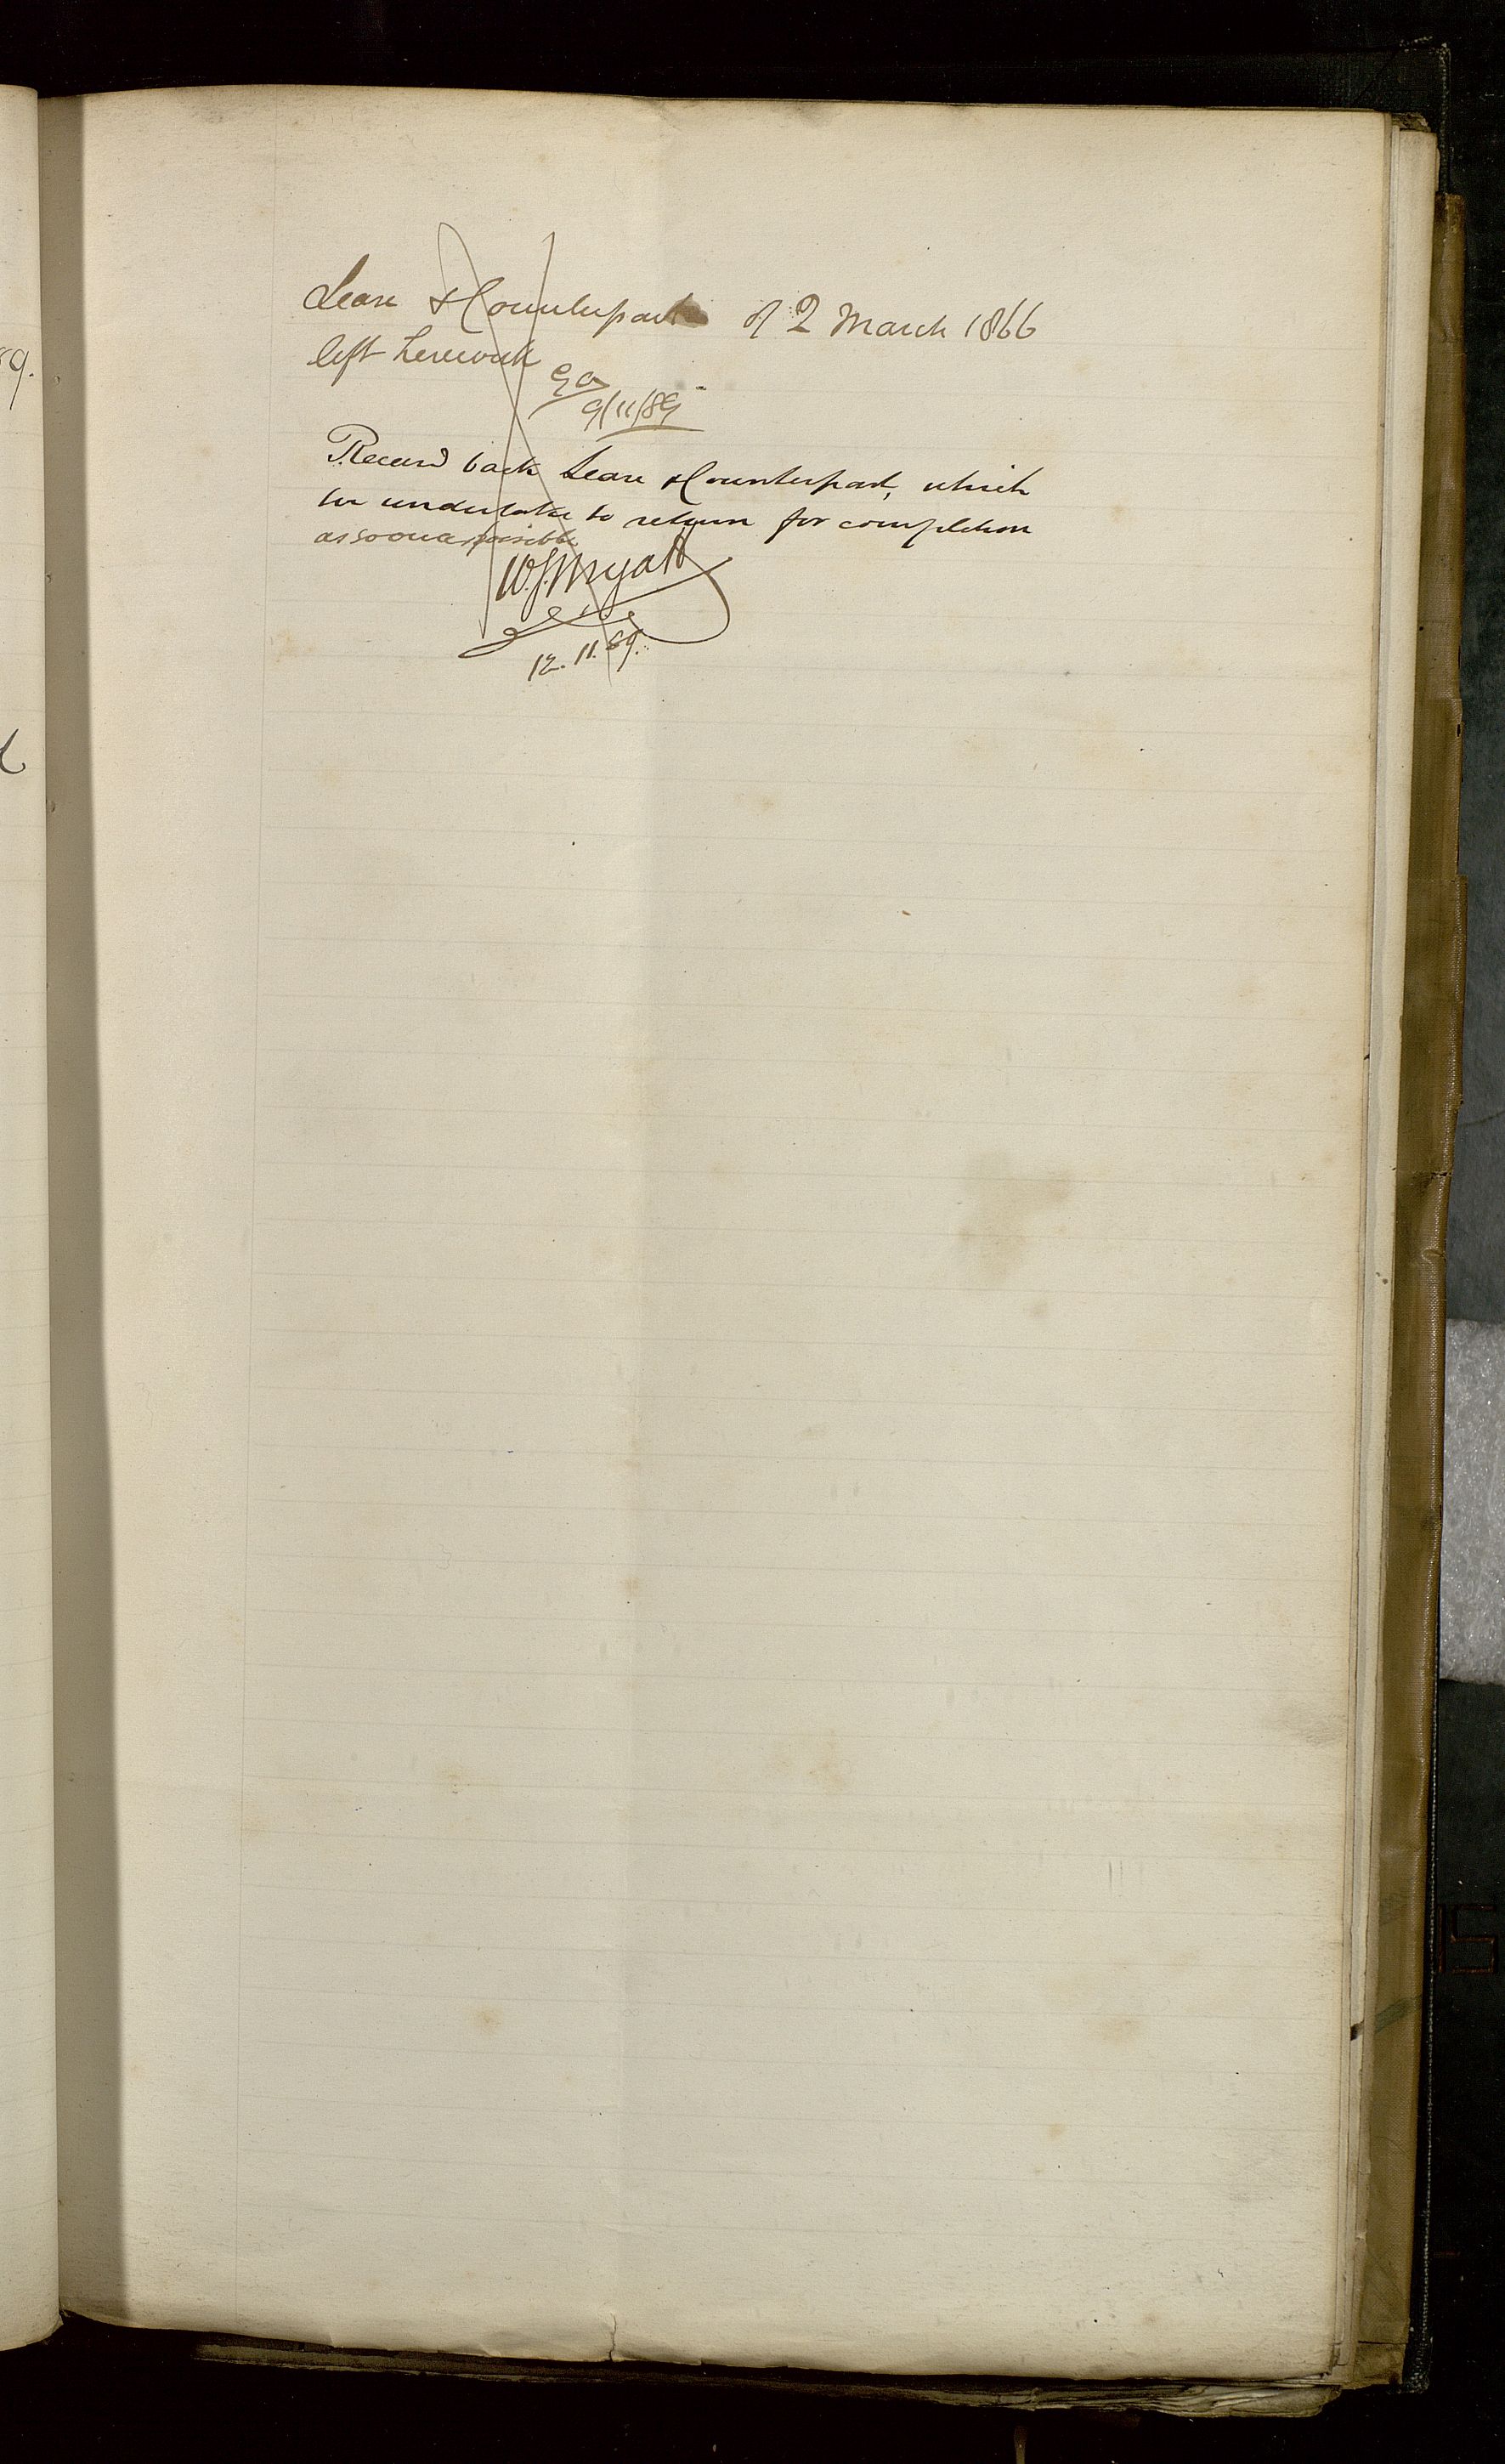 89.
Lease & Counterpart of 2 March 1866
left herewith
9/11/89
Received back Lease & Counterpart, which
we undertake to return for completion
as soon as possible
W. J. Myatt
12.11.89.